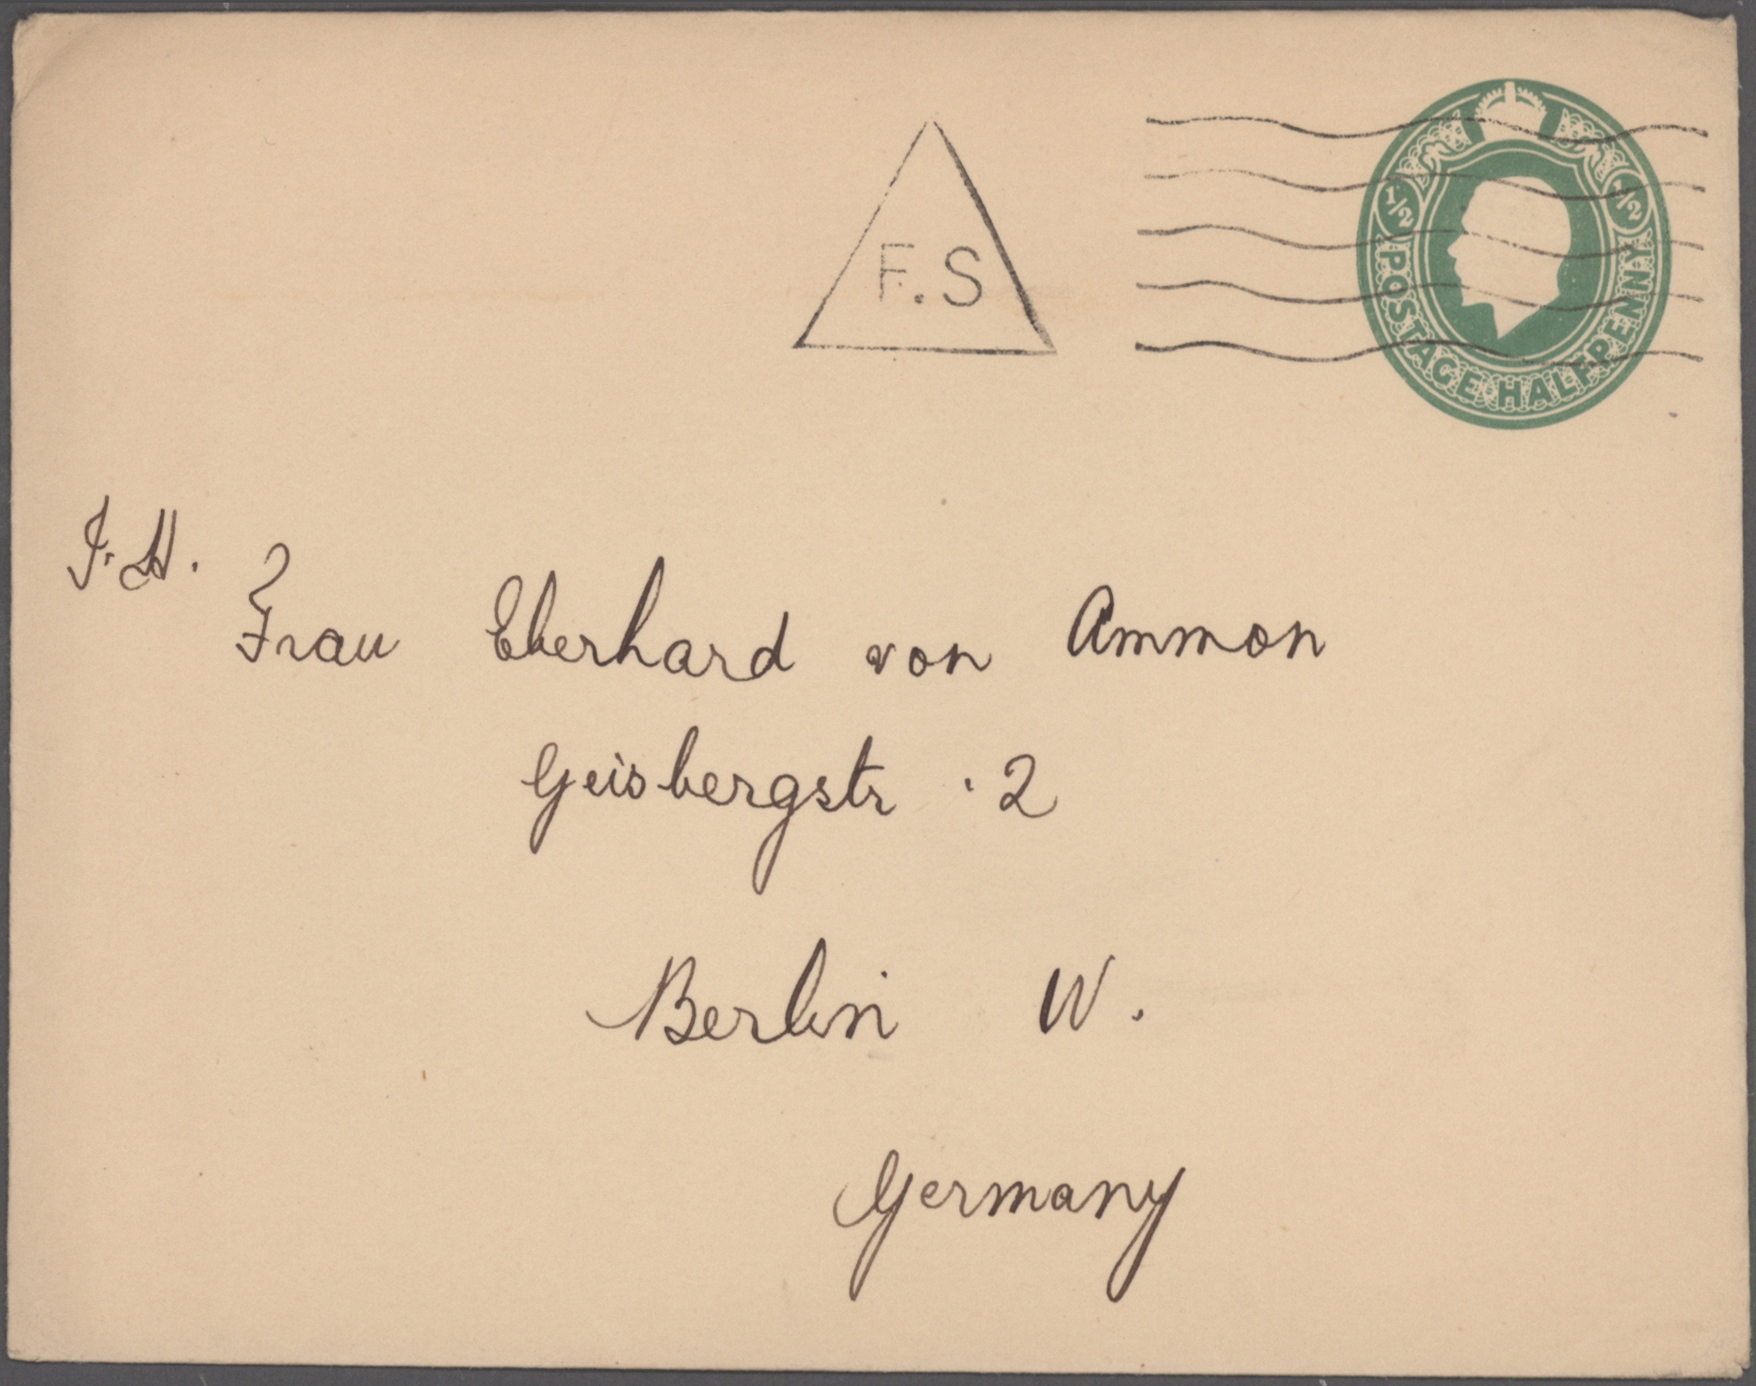 F.S
1/2 1/2
POSTAGE HALFPENNY
I.H.
Frau Eberhard von Ammon
Geisbergstr. 2
Berlin W.
Germany